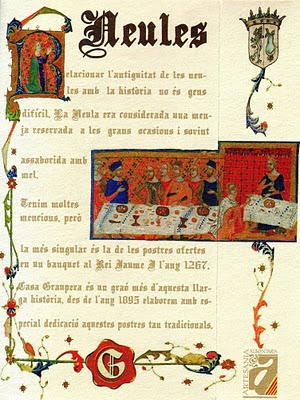 Neules
Relacionar l'antiguitat de les neu-
les amb la història no és gens
difícil. La Neula era considerada una men-
ja reservada a les grans ocasions i sovint
assaborida amb
mel.
Tenim moltes
mencions, però
la més singular és la de les postres ofertes
en un banquet al Rei Jaume I l'any 1267.
Casa Graupera és un graó més d'aquesta llar-
ga història, des de l'any 1895 elaborem amb es-
pecial dedicació aquestes postres tan tradicionals.
G
ARTESANIA
ALIMENTÀRIA